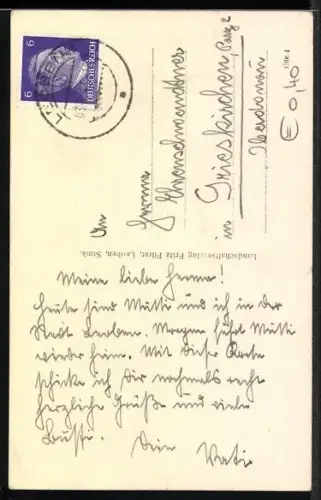 6 DEUTSCHES REICH 6
LEOBEN
An
Herma
in Grieskirchen,
Oberdonau
€ 0,40
Landschaftsverlag Fritz Fürst, Leoben, Stmk.
Meine liebe Herma!
Heute sind Mutti und ich in der
Stadt Leoben. Morgen fährt Mutti
wieder heim. Mit dieser Karte
schicke ich Dir nochmals recht
herzliche Grüße und viele
Bussi. Dein Vati